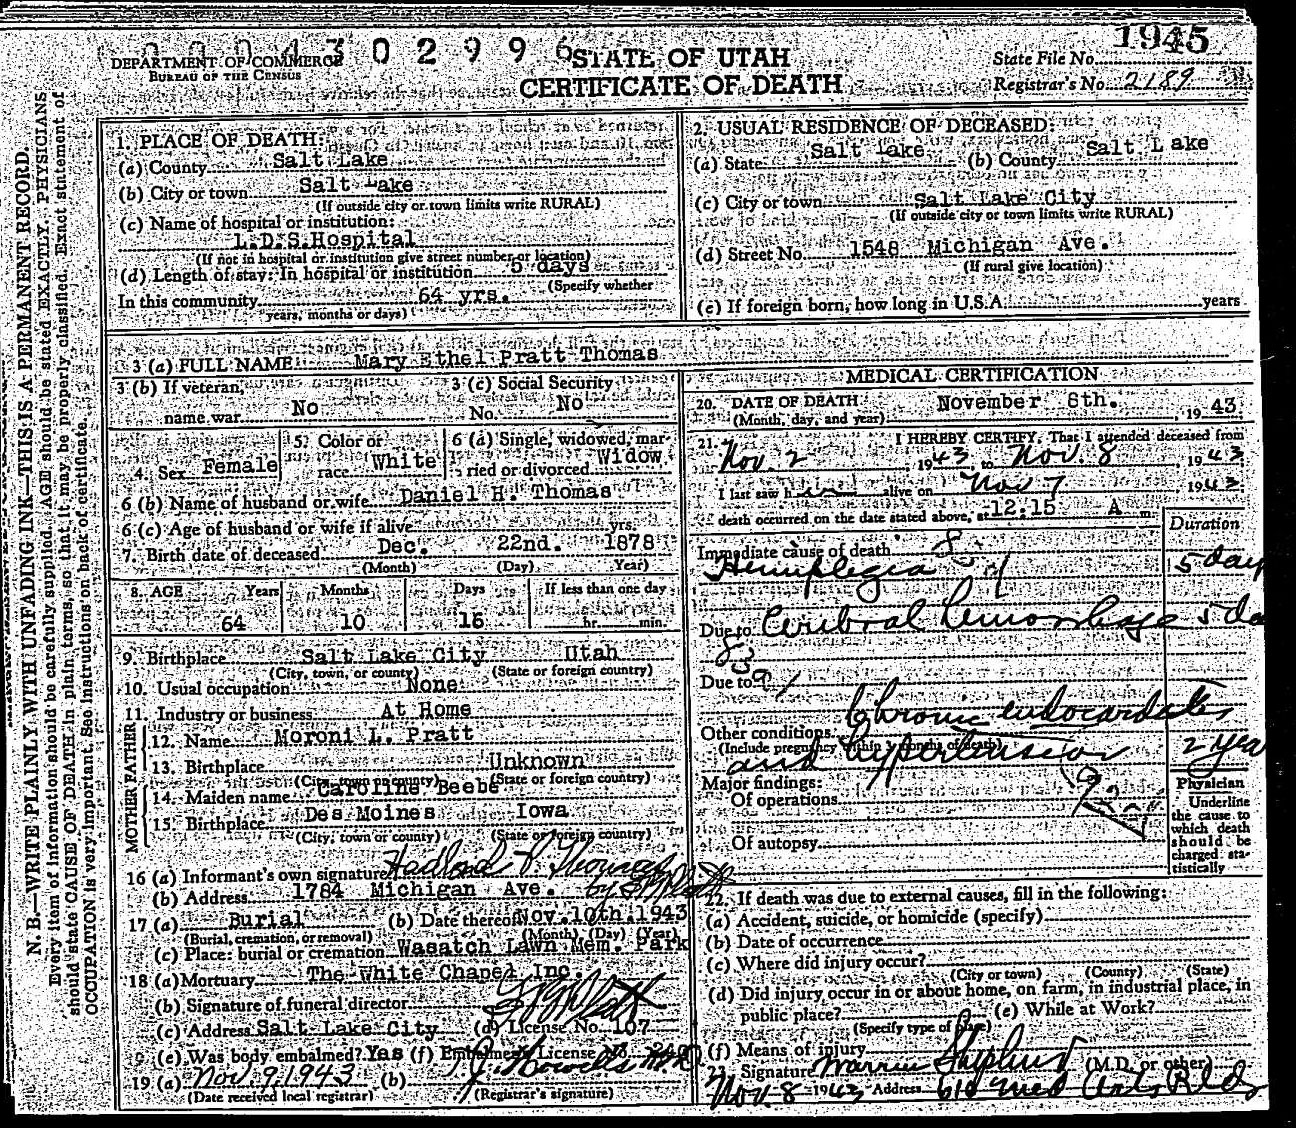 0004302996
1945
DEPARTMENT OF COMMERCE
BUREAU OF THE CENSUS
STATE OF UTAH
CERTIFICATE OF DEATH
State File No.
Registrar's No. 2189
N. B.—WRITE PLAINLY WITH UNFADING INK—THIS IS A PERMANENT RECORD.
Every item of information should be carefully supplied. AGE should be stated EXACTLY. PHYSICIANS
should state CAUSE OF DEATH in plain terms, so that it may be properly classified. Exact statement of
OCCUPATION is very important. See instructions on back of certificate.
1. PLACE OF DEATH:
(a) County Salt Lake
(b) City or town Salt Lake
(If outside city or town limits write RURAL)
(c) Name of hospital or institution:
L.D.S.Hospital
(If not in hospital or institution give street number or location)
(d) Length of stay: In hospital or institution 5 days
(Specify whether
In this community 64 yrs.
years, months or days)
2. USUAL RESIDENCE OF DECEASED:
(a) State Salt Lake (b) County Salt Lake
(c) City or town Salt Lake City
(If outside city or town limits write RURAL)
(d) Street No. 1548 Michigan Ave.
(If rural give location)
(e) If foreign born, how long in U.S.A. years
3 (a) FULL NAME Mary Ethel Pratt Thomas
3 (b) If veteran, name war No
3 (c) Social Security No. No
4. Sex Female
5. Color or race White
6 (a) Single, widowed, married or divorced Widow
6 (b) Name of husband or wife Daniel H. Thomas
6 (c) Age of husband or wife if alive yrs.
7. Birth date of deceased Dec. 22nd. 1878
(Month) (Day) Year)
8. AGE Years Months Days If less than one day
64 10 16 hr. min.
9. Birthplace Salt Lake City Utah
(City, town, or county) (State or foreign country)
10. Usual occupation None
11. Industry or business At Home
FATHER
12. Name Moroni L. Pratt
13. Birthplace Unknown
(City, town or county) (State or foreign country)
MOTHER
14. Maiden name Caroline Beebe
15. Birthplace Des Moines Iowa
(City, town or county) (State or foreign country)
16 (a) Informant's own signature
(b) Address 1784 Michigan Ave.
17 (a) Burial (b) Date thereof Nov.10th.1943
(Burial, cremation, or removal) (Month) (Day) (Year)
(c) Place: burial or cremation Wasatch Lawn Mem. Park
18 (a) Mortuary The White Chapel Inc.
(b) Signature of funeral director
(c) Address Salt Lake City (d) License No. 107
(e) Was body embalmed? Yes (f) Embalmer's License No.
19 (a) Nov. 9, 1943 (b)
(Date received local registrar) (Registrar's signature)
MEDICAL CERTIFICATION
20. DATE OF DEATH November 8th. 1943
(Month, day, and year)
21. I HEREBY CERTIFY, That I attended deceased from
Nov. 2, 1943 to Nov. 8, 1943
I last saw her alive on Nov 7 1943
death occurred on the date stated above, at 12:15 A m.
Duration
Immediate cause of death
Hemiplegia 5 day
Due to Cerebral hemorrhage 5 da
Due to
Chronic endocarditis
Other conditions
(Include pregnancy within 3 months of death)
and hypertension 2 yea
Major findings:
Of operations
Of autopsy
Physician
Underline
the cause to
which death
should be
charged sta-
tistically
22. If death was due to external causes, fill in the following:
(a) Accident, suicide, or homicide (specify)
(b) Date of occurrence
(c) Where did injury occur?
(City or town) (County) (State)
(d) Did injury occur in or about home, on farm, in industrial place, in
public place? (e) While at Work?
(Specify type of place)
(f) Means of injury
23. Signature Warren Shepherd (M.D. or other)
Nov. 8 1943 Address 610 Med Arts Bldg